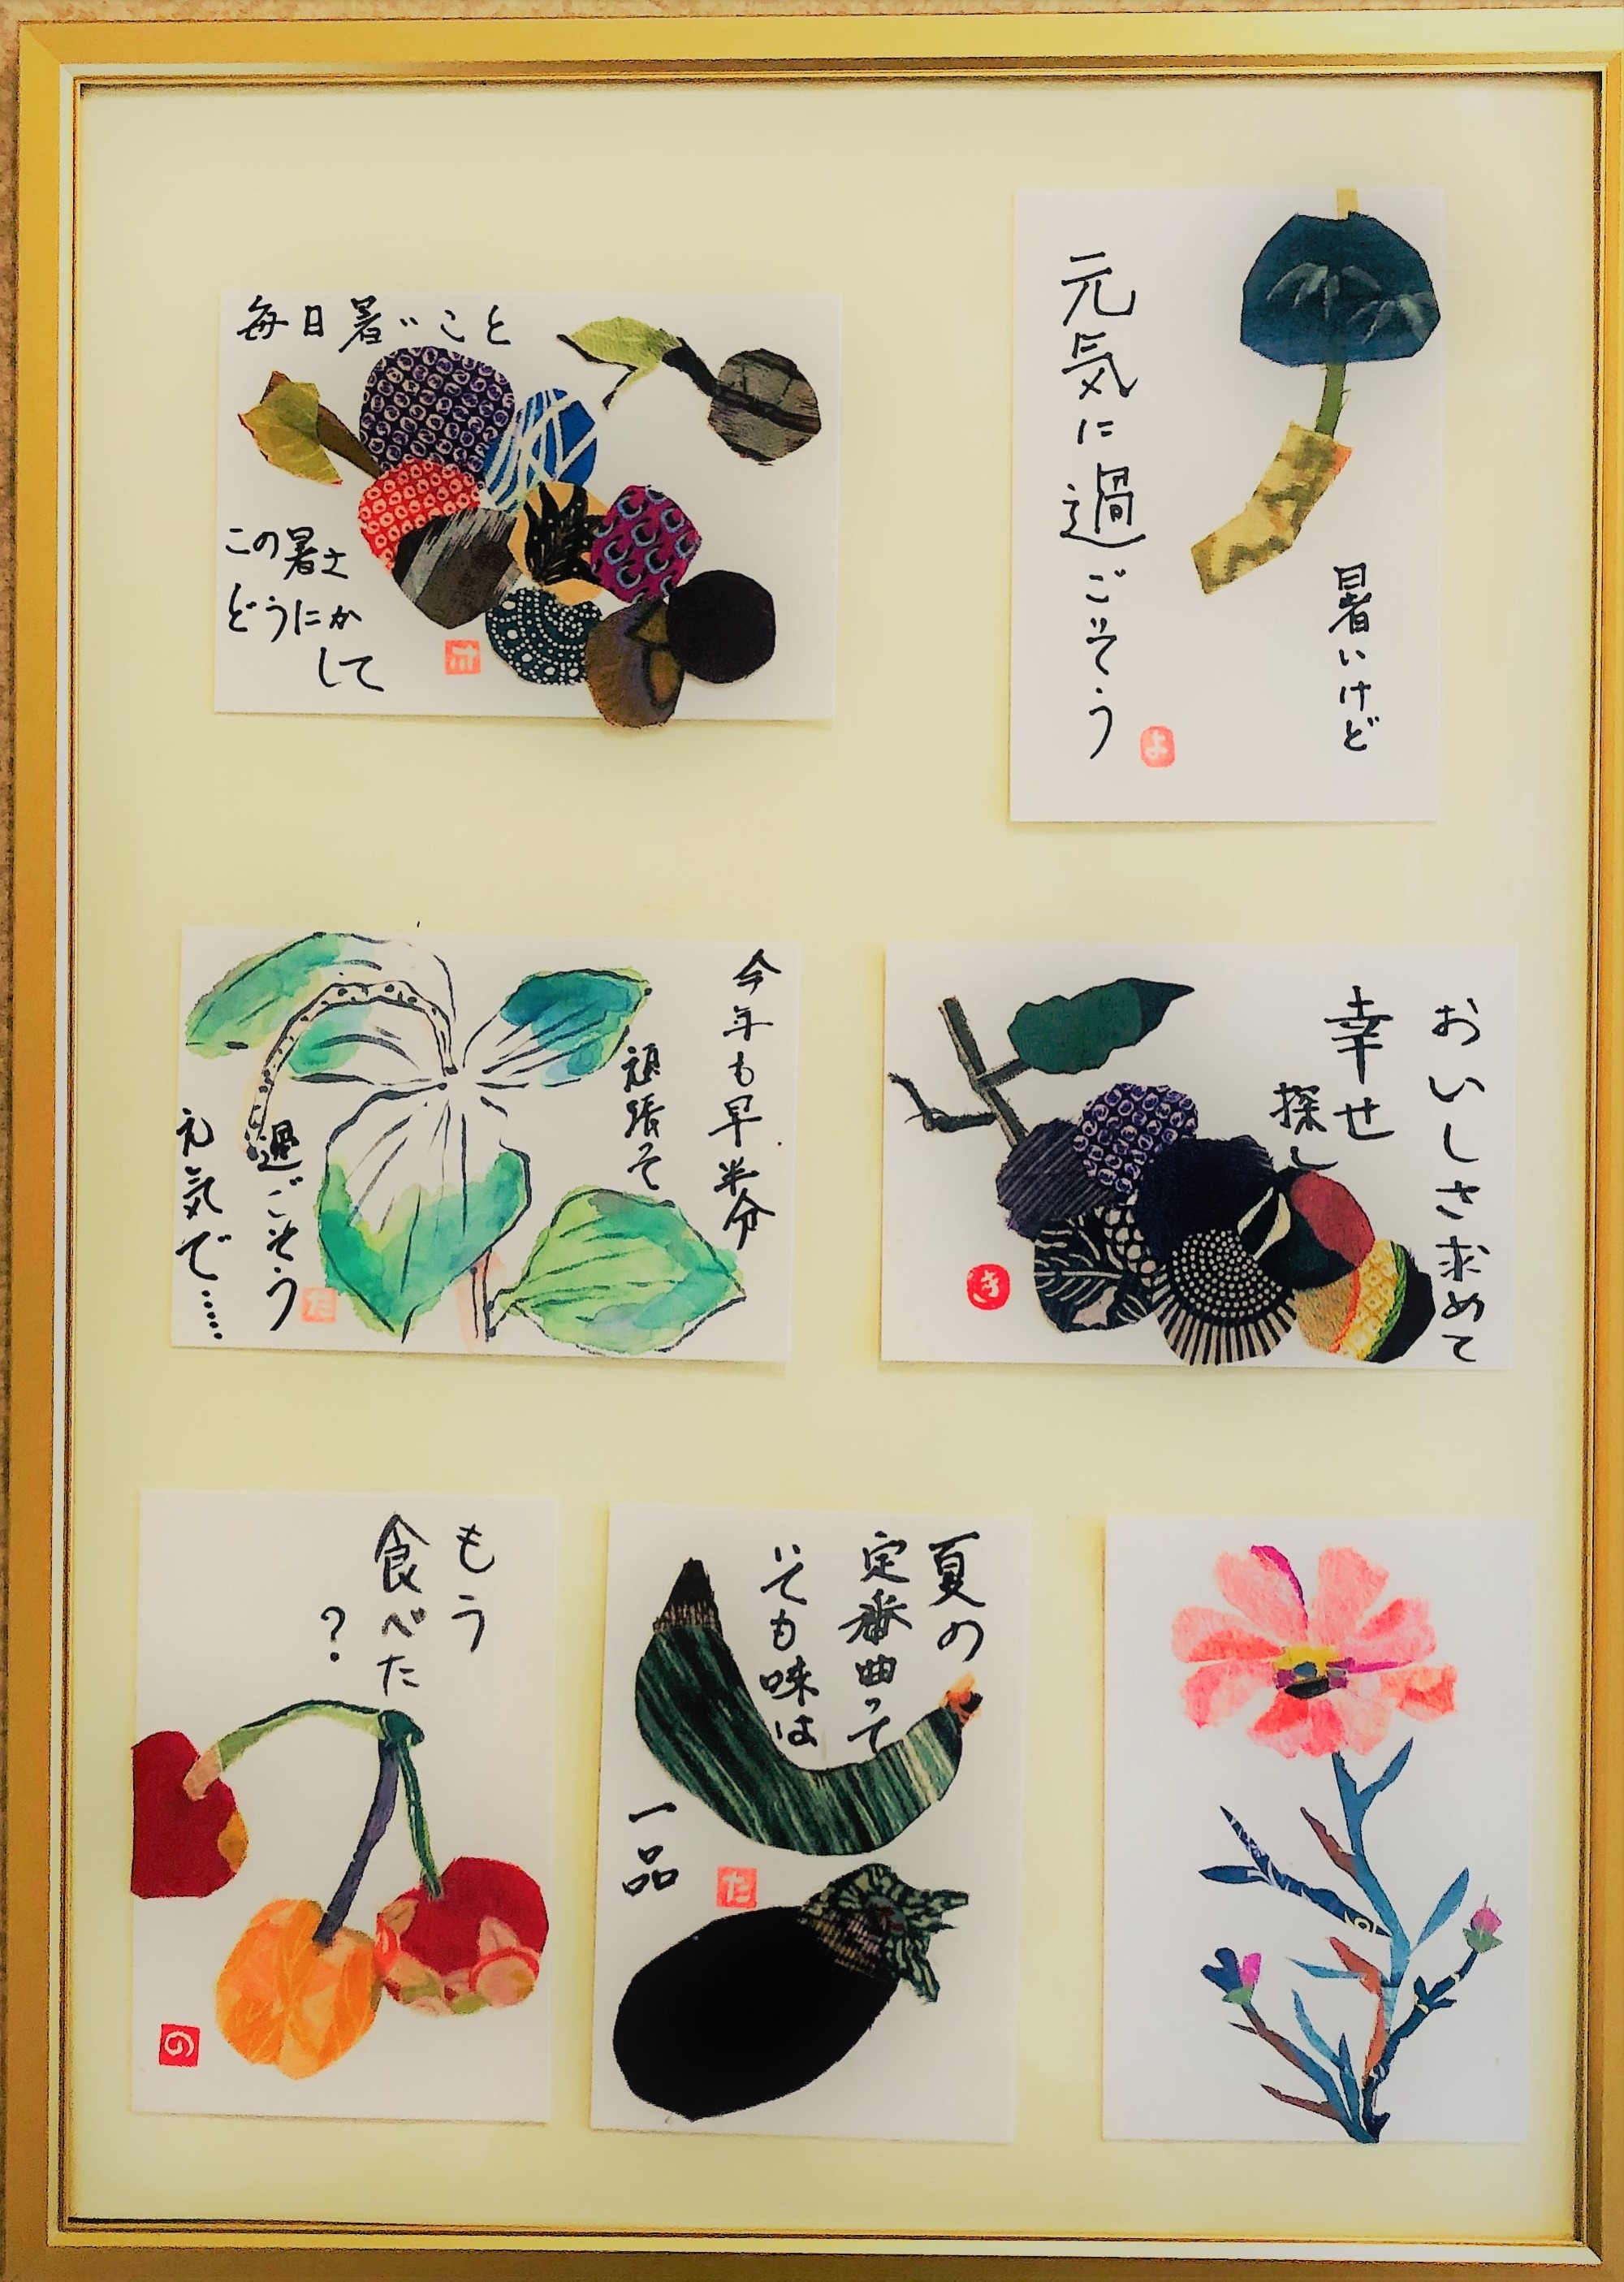 毎日暑いこと
この暑さ
どうにか
して
暑いけど
元気に過ごそう
よ
今年も早半分
頑張って
過ごそう
元気で……
た
おいしさ求めて
幸せ
探し
き
もう
食べた
?
の
夏の
定番曲って
いても味は
一品
た